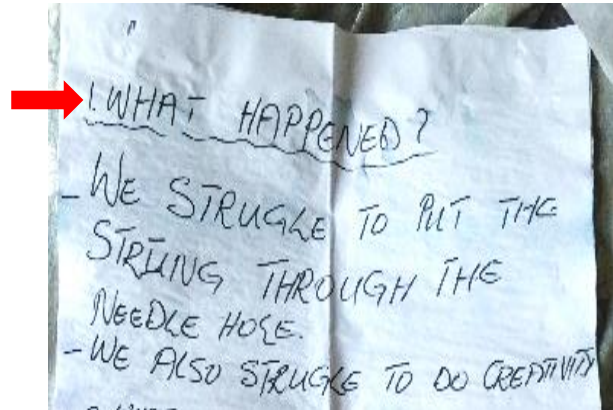 1. WHAT HAPPENED?
- WE STRUGLE TO PUT THE
STRING THROUGH THE
NEEDLE HOLE.
- WE ALSO STRUGLE TO DO CREATIVITY